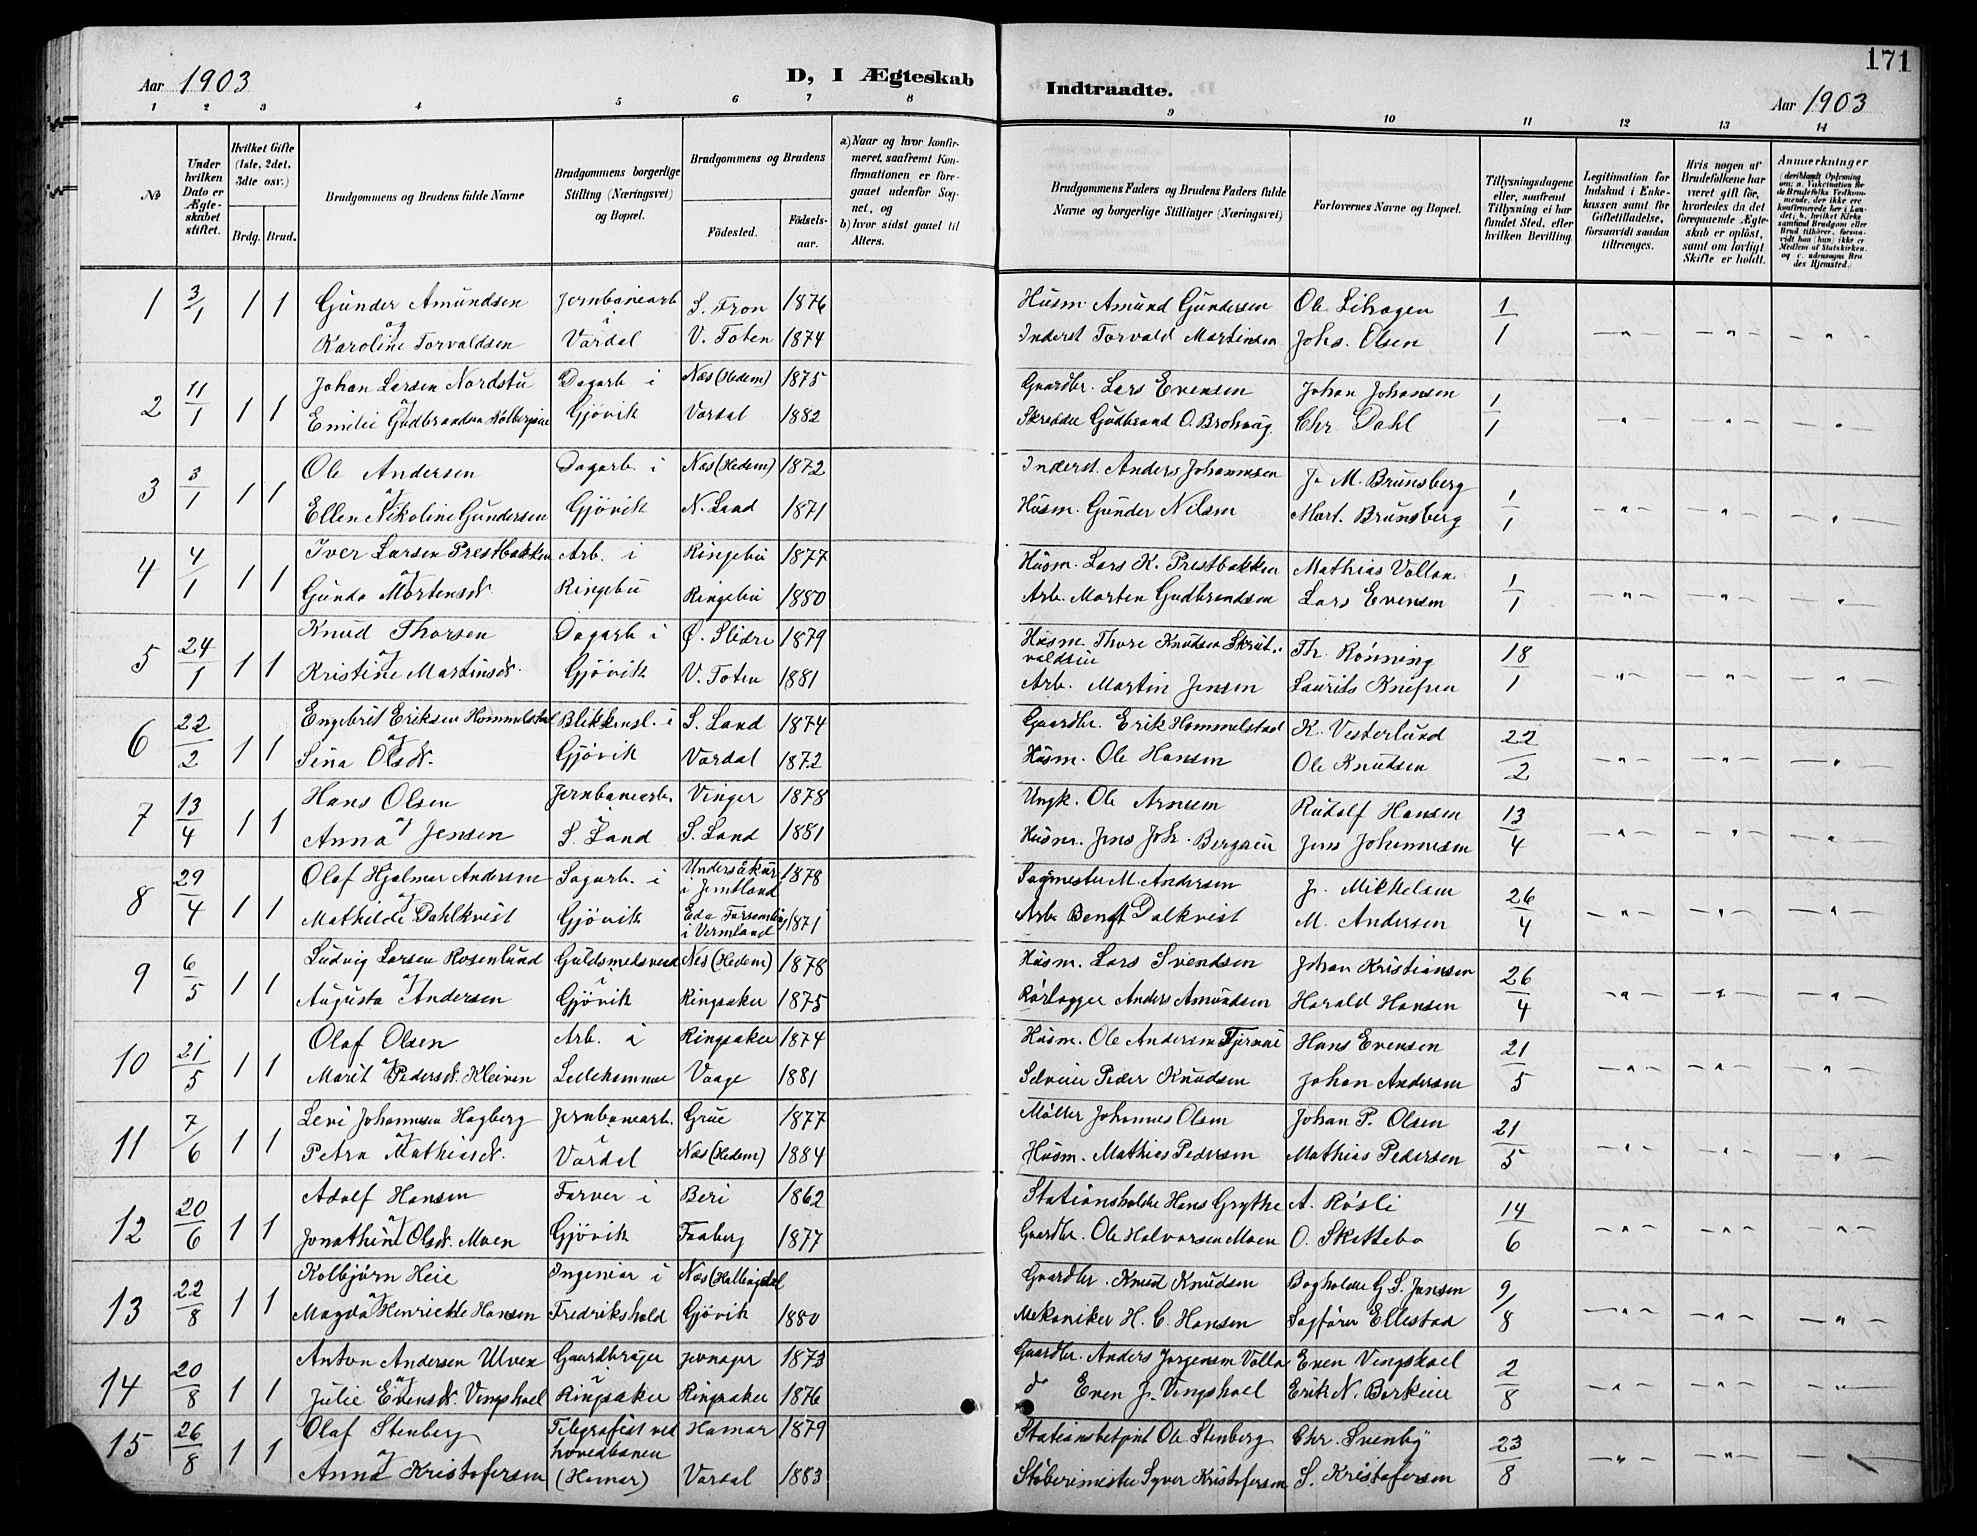 171
Aar 1903
D, I Ægteskab
Indtraadte.
Aar 1903
1 2 3 4 5 6 7 8 9 10 11 12 13 14
№
Under hvilken Dato er Ægteskabet stiftet.
Hvilket Gifte (1ste, 2det, 3die osv.)
Brdg. Brud.
Brudgommens og Brudens fulde Navne
Brudgommens borgerlige Stilling (Næringsvei) og Bopæl.
Brudgommens og Brudens
Födested.
Födselsaar.
a) Naar og hvor konfirmeret, saafremt Konfirmationen er foregaaet udenfor Sognet, og
b) hvor sidst gaaet til Alters.
Brudgommens Faders og Brudens Faders fulde Navne og borgerlige Stillinger (Næringsvei)
Forlovernes Navne og Bopæl.
Tillysningsdagene eller, saafremt Tillysning ei har fundet Sted, efter hvilken Bevilling.
Legitimation for Indskud i Enkekassen samt for Giftetilladelse, forsaavidt saadan tiltrænges.
Hvis nogen af Brudefolkene har været gift før, hvorledes da det foregaaende Ægteskab er oplöst, samt om lovligt Skifte er holdt.
Anmerkninger
1 3/1 1 1 Gunder Amundsen Jernbanearb S. Fron 1876 Husm. Amund Gundersen Ole Lihagen 1/1
og Karoline Torvaldsen i Vardal V. Toten 1874 Inderst Torvald Martinsen Johs. Olsen
2 11/1 1 1 Johan Larsen Nordstu Dagarb i Næs (Hedem) 1875 Gaardbr. Lars Evensen Johan Johansen 1/1
og Emilie Gudbrandsen Gjövik Vardal 1882 Skrædder Gudbrand O. Chr Dahl
3 3/1 1 1 Ole Andersen Dagarb. i Næs (Hedem) 1872 Inderst. Anders Johannesen J. M. Brunsberg 1/1
og Ellen Nikoline Gundersen Gjövik N. Land 1871 Husm. Gunder Nilsen Mart. Brunsberg
4 4/1 1 1 Iver Larsen Prestbakken Arb. i Ringebu 1877 Husm. Lars K. Prestbakken Mathias Vollan 1/1
og Gunda Mortensdr. Ringebu Ringebu 1880 Arb. Morten Gudbrandsen Lars Evensen
5 24/1 1 1 Knud Thorsen Dagarb i Ø. Slidre 1879 Husm. Thore Knudsen Skrutvoldseie Th. Rönning 18/1
og Kristine Martinsdr. Gjövik V. Toten 1881 Arb. Martin Jensen Laurits
6 22/2 1 1 Engebrit Eriksen Hommelstad Blikkensl. i S. Land 1874 Gaardbr. Erik Hommelstad K. Vesterlund 22/2
og Sina Olsdr. Gjövik Vardal 1872 Husm. Ole Hansen Ole Knudsen
7 13/4 1 1 Hans Olsen Jernbanearb. Vinger 1878 Ungk. Ole Arnesen Rudolf Hansen 13/4
og Anna Jensen i S. Land S. Land 1881 Husm. Jens Joh. Bergseie Jens Johannesen
8 29/4 1 1 Olaf Hjalmar Andersen Sagarb. i Undersåker i Jemtland 1878 Sagmester M. Andersen J. Mikkelsen 26/4
og Mathilde Dahlkvist Gjövik Eda Forsamling i Vermland 1871 Arb. Bengt Dalkvist M. Andersen
9 6/5 1 1 Ludvig Larsen Rosenlund Guldsmedsvend Nes (Hedem) 1878 Husm. Lars Svendsen Johan Kristiansen 26/4
og Augusta Andersen i Gjövik Ringsaker 1875 Rörlægger Anders Amundsen Harald Hansen
10 21/5 1 1 Olaf Olsen Arb. i Ringsaker 1874 Husm. Ole Andersen Hans Evensen 21/5
og Marit Pedersdr. Kleiven Lillehammer Vaage 1881 Selveier Peder Knudsen Johan Andersen
11 7/6 1 1 Levi Johannesen Hagberg Jernbanearb. Grue 1877 Möller Johannes Olsen Johan P. Olsen 21/5
og Petra Mathiasdr. i Vardal Næs (Hedem) 1884 Husm. Mathias Pedersen Mathias Pedersen
12 20/6 1 1 Adolf Hansen Farver i Beri 1862 Stationsholder Hans Grythe A. Rösli 14/6
og Jonathine Olsdr. Moen Gjövik Faaberg 1877 Gaardbr. Ole Halvorsen Moen O. Skattebo
13 22/8 1 1 Kolbjörn Heie Ingeniør i Næs (Hallingdal Gaardbr. Knud Knudsen Bogholder G. S. Jensen 9/8
og Magda Henriette Hansen Fredrikshald Gjövik 1880 Mekaniker H. C. Hansen Sagfører Ellestad
14 20/8 1 1 Anton Andersen Ulven Gaardbruger Jevnager 1873 Gaardbr. Anders Jörgensen Volla Even Vingshoel 2/8
og Julie Evensdr. Vingshoel i Ringsaker Ringsaker 1876 do Even J. Vingshoel Erik N. Borkeie
15 26/8 1 1 Olaf Stenberg Telegrafist ved Hamar 1879 Stationsbetjent Ole Stenberg Chr. Svenby 23/8
og Anna Kristofersen hovedbanen (Hamar) Vardal 1883 Stöberimester Syver Kristofersen S. Kristofersen